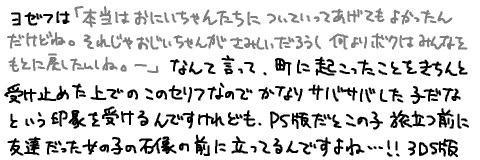 ヨゼフは「本当はおにいちゃんたちに ついていってあげてもよかったん
だけどね。それじゃおじいちゃんが さみしいだろうし 何よりボクはみんなを
もとに戻したいしね。ー」なんて言って、町に起こったことをきちんと
受け止めた上でのこのセリフなので かなりサバサバした子だな
という印象を受けるんですけれども、PS版だとこの子旅立つ前に
友達だった女の子の石像の前に立ってるんですよね…!! 3DS版